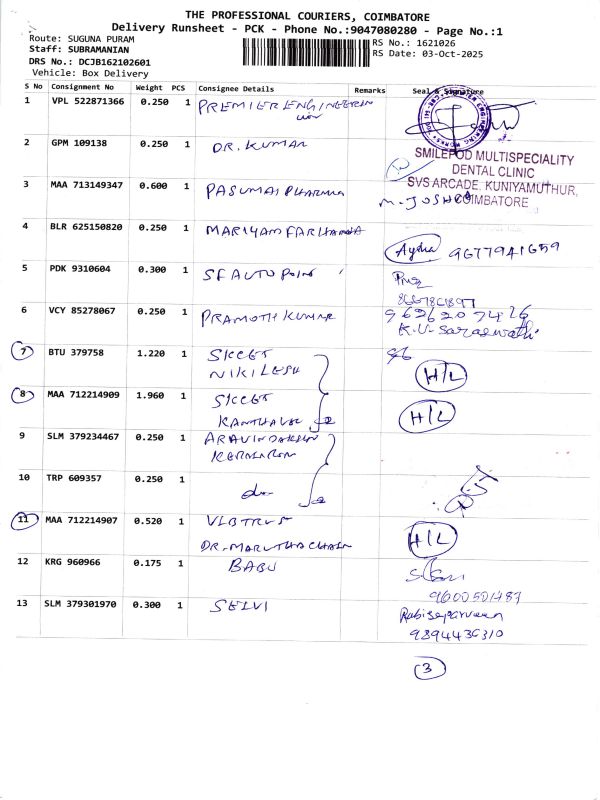 THE PROFESSIONAL COURIERS, COIMBATORE
Delivery Runsheet - PCK - Phone No.:9047080280 - Page No.:1
Route: SUGUNA PURAM
Staff: SUBRAMANIAN
DRS No.: DCJB162102601
Vehicle: Box Delivery
RS No.: 1621026
RS Date: 03-Oct-2025
S No Consignment No Weight PCS Consignee Details Remarks Seal & Signature
1 VPL 522871366 0.250 1 PREMIER ENGINEERIN
2 GPM 109138 0.250 1 DR. KUMAR
SMILEPOD MULTISPECIALITY
DENTAL CLINIC
SVS ARCADE, KUNIYAMUTHUR,
COIMBATORE
3 MAA 713149347 0.600 1 PASUMAI PHARMA M. JOSHCA
4 BLR 625150820 0.250 1 MARIYAM FARHANA Aysha 9677941659
5 PDK 9310604 0.300 1 SF AUTO POINT
6 VCY 85278067 0.250 1 PRAMOTH KUMAR 9626207426
K.V. Saraswathi
7 BTU 379758 1.220 1 SKCET
NIKILESH H/L
8 MAA 712214909 1.960 1 SKCET H/L
9 SLM 379234467 0.250 1
10 TRP 609357 0.250 1 do
11 MAA 712214907 0.520 1 VLB TRUST H/L
DR. MARUTHACHALN
12 KRG 960966 0.175 1 BABU
13 SLM 379301970 0.300 1 SELVI
9894436310
3